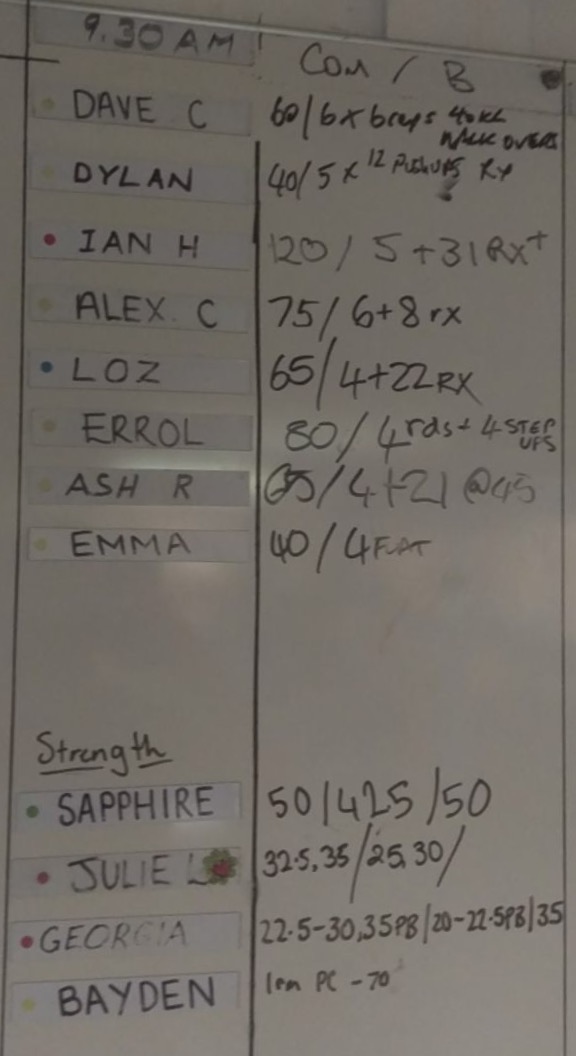 9.30 AM COM / B
DAVE C 60/6x6reps 40kg
WALK OVERS
DYLAN 40/5 x 12 PUSHUPS RX
IAN H 120 / 5+31 RX+
ALEX. C 75/6+8 rx
LOZ 65/4+22 RX
ERROL 80/4rds+ 4 STEP
UPS
ASH R 65/4+21 @45
EMMA 40/4 FLAT
Strength
SAPPHIRE 50/425/50
JULIE L 32.5,35/25,30/
GEORGIA 22.5-30,35PB/20-22.5PB/35
BAYDEN 1rm PC - 70